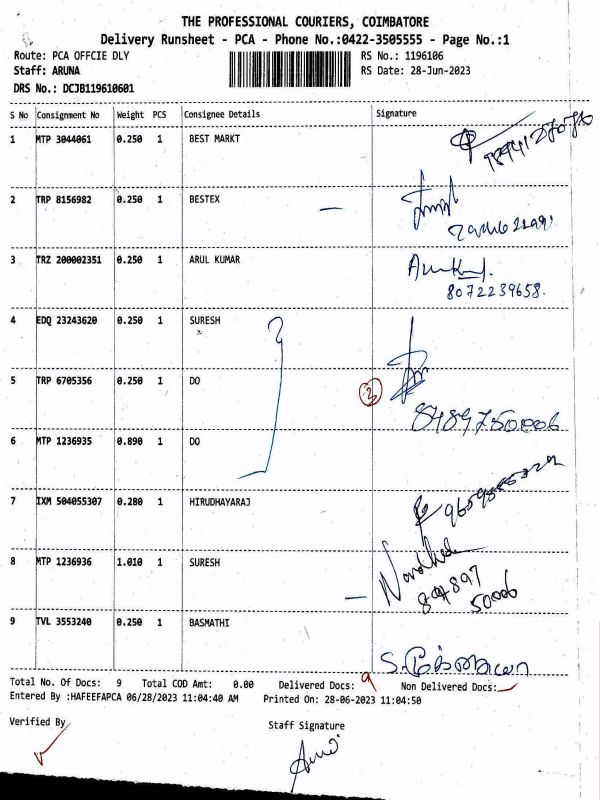 THE PROFESSIONAL COURIERS, COIMBATORE
Delivery Runsheet - PCA - Phone No.:0422-3505555 - Page No.:1
Route: PCA OFFCIE DLY RS No.: 1196106
Staff: ARUNA RS Date: 28-Jun-2023
DRS No.: DCJB119610601
S No Consignment No Weight PCS Consignee Details Signature
1 MTP 3044061 0.250 1 BEST MARKT
2 TRP 8156982 0.250 1 BESTEX
3 TRZ 200002351 0.250 1 ARUL KUMAR
8072239658.
4 EDQ 23243620 0.250 1 SURESH
5 TRP 6705356 0.250 1 DO
3
8489750006
6 MTP 1236935 0.890 1 DO
7 IXM 504055307 0.280 1 HIRUDHAYARAJ
8 MTP 1236936 1.010 1 SURESH
84897
50006
9 TVL 3553240 0.250 1 BASMATHI
Total No. Of Docs: 9 Total COD Amt: 0.00 Delivered Docs: 9 Non Delivered Docs:
Entered By :HAFEEFAPCA 06/28/2023 11:04:40 AM Printed On: 28-06-2023 11:04:50
Verified By Staff Signature